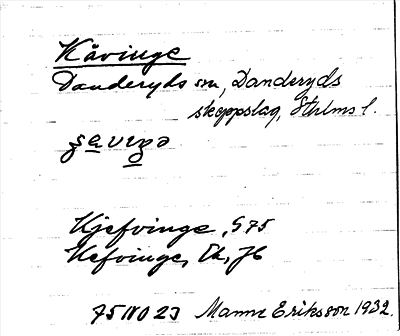 Kåvinge
Danderyds sn, Danderyds
skeppslag, Sthlms l.
Kjefvinge, G 75
Kefvinge, Ek, Jb
75 NO 23 Manne Eriksson 1932.